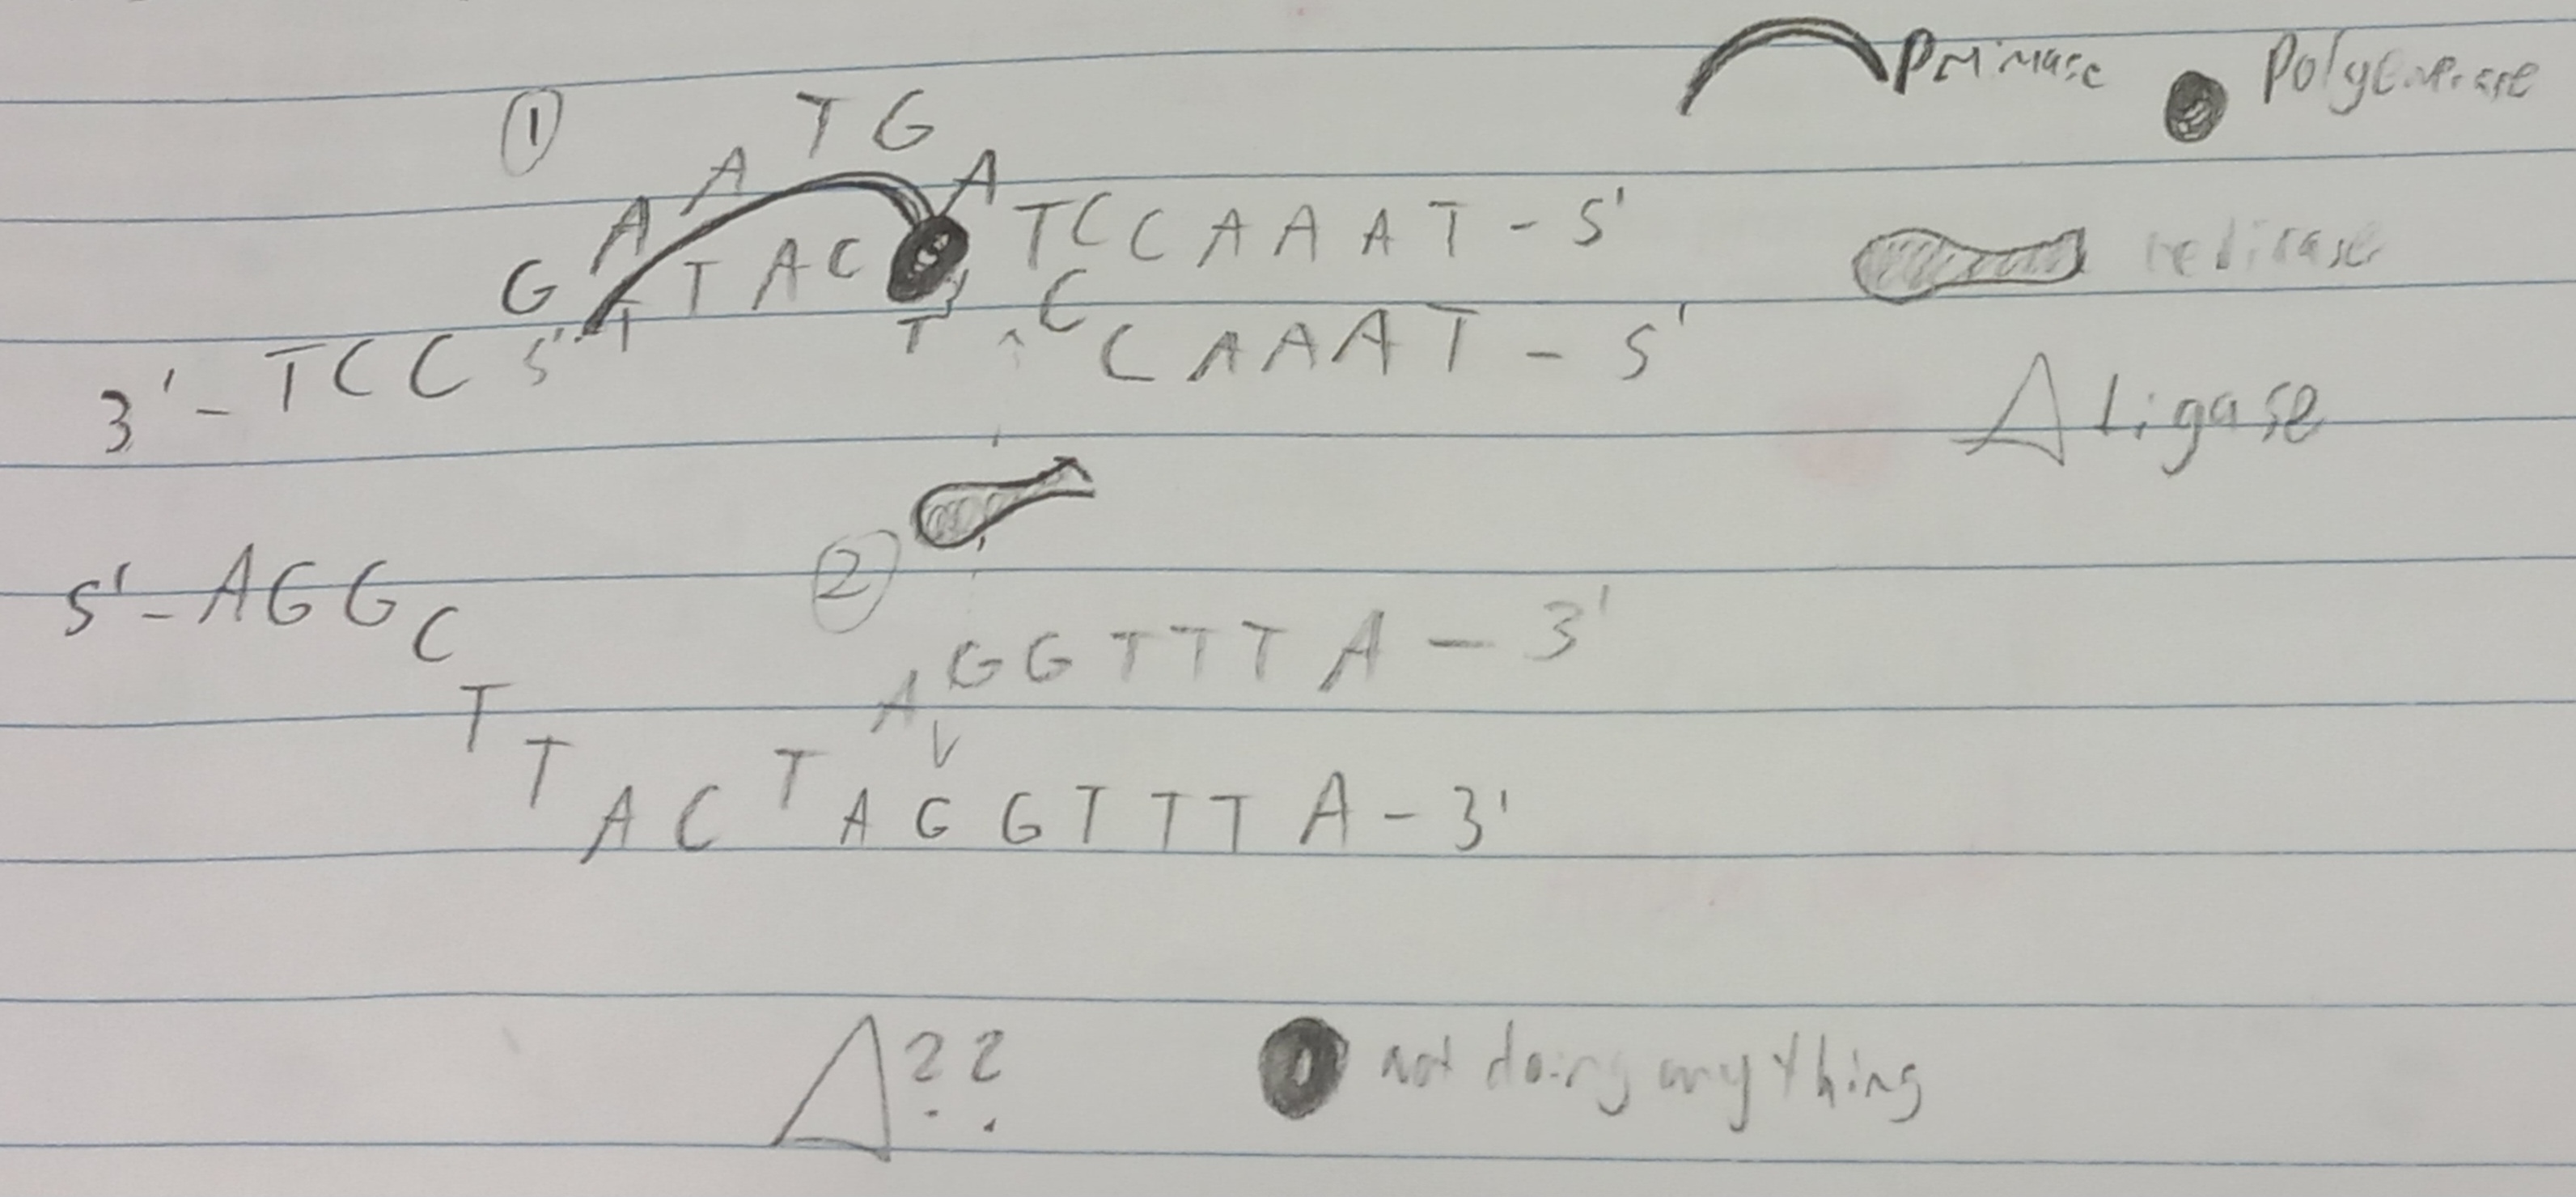 ① T G
A
A
A
G
primase
TCCAAAT - 5'
T T A C
3'
C
T
CAAAT - 5'
3' - TCC 5'
Ligase
②
5' - AGG C
GGTTTA - 3'
A
T
T
A C T A G G T T T A - 3'
?? not doing anything